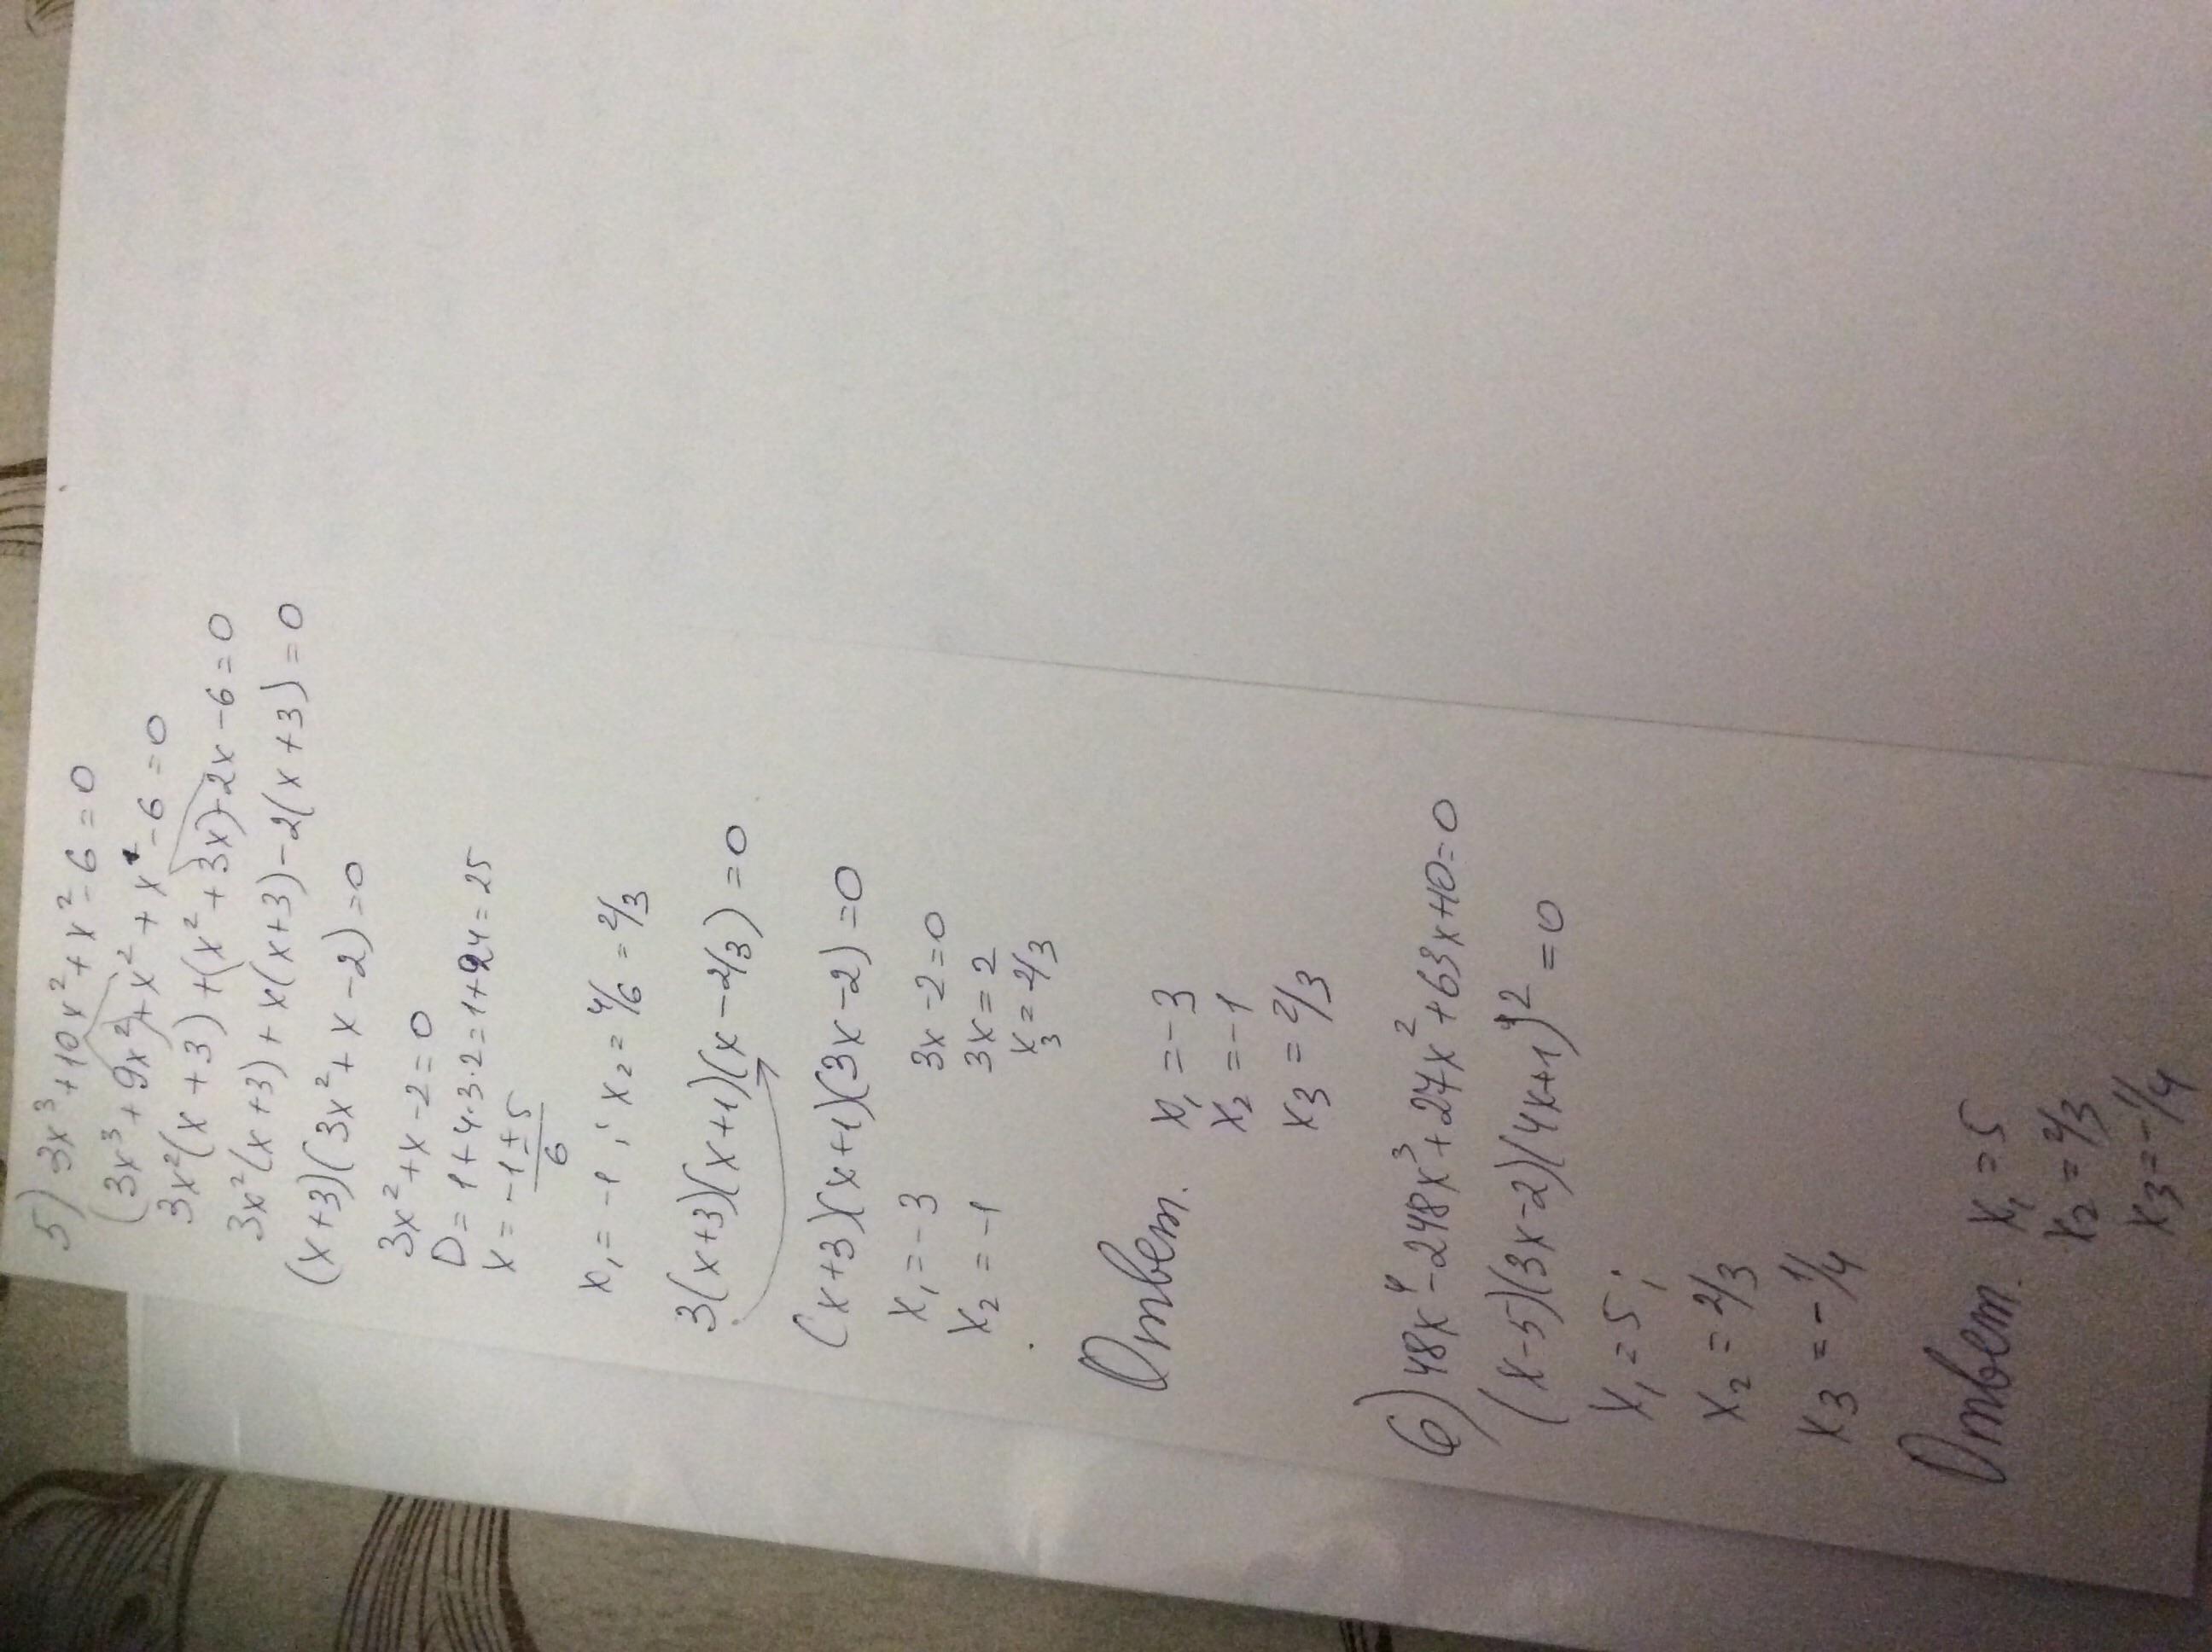 5) 3x³+10x²+x²-6=0
(3x³+9x²)+x²+x-6=0
3x²(x+3)+(x²+3x)-2x-6=0
3x²(x+3)+x(x+3)-2(x+3)=0
(x+3)(3x²+x-2)=0
3x²+x-2=0
D=1+4·3·2=1+24=25
x=(-1±5)/6
x₁=-1; x₂=4/6=2/3
3(x+3)(x+1)(x-2/3)=0
(x+3)(x+1)(3x-2)=0
x₁=-3 3x-2=0
x₂=-1 3x=2
x₃=2/3
Ответ. x₁=-3
x₂=-1
x₃=2/3
6) 48x⁴-248x³+27x²+63x+10=0
(x-5)(3x-2)(4x+1)²=0
x₁=5;
x₂=2/3
x₃=-1/4
Ответ. x₁=5
x₂=2/3
x₃=-1/4